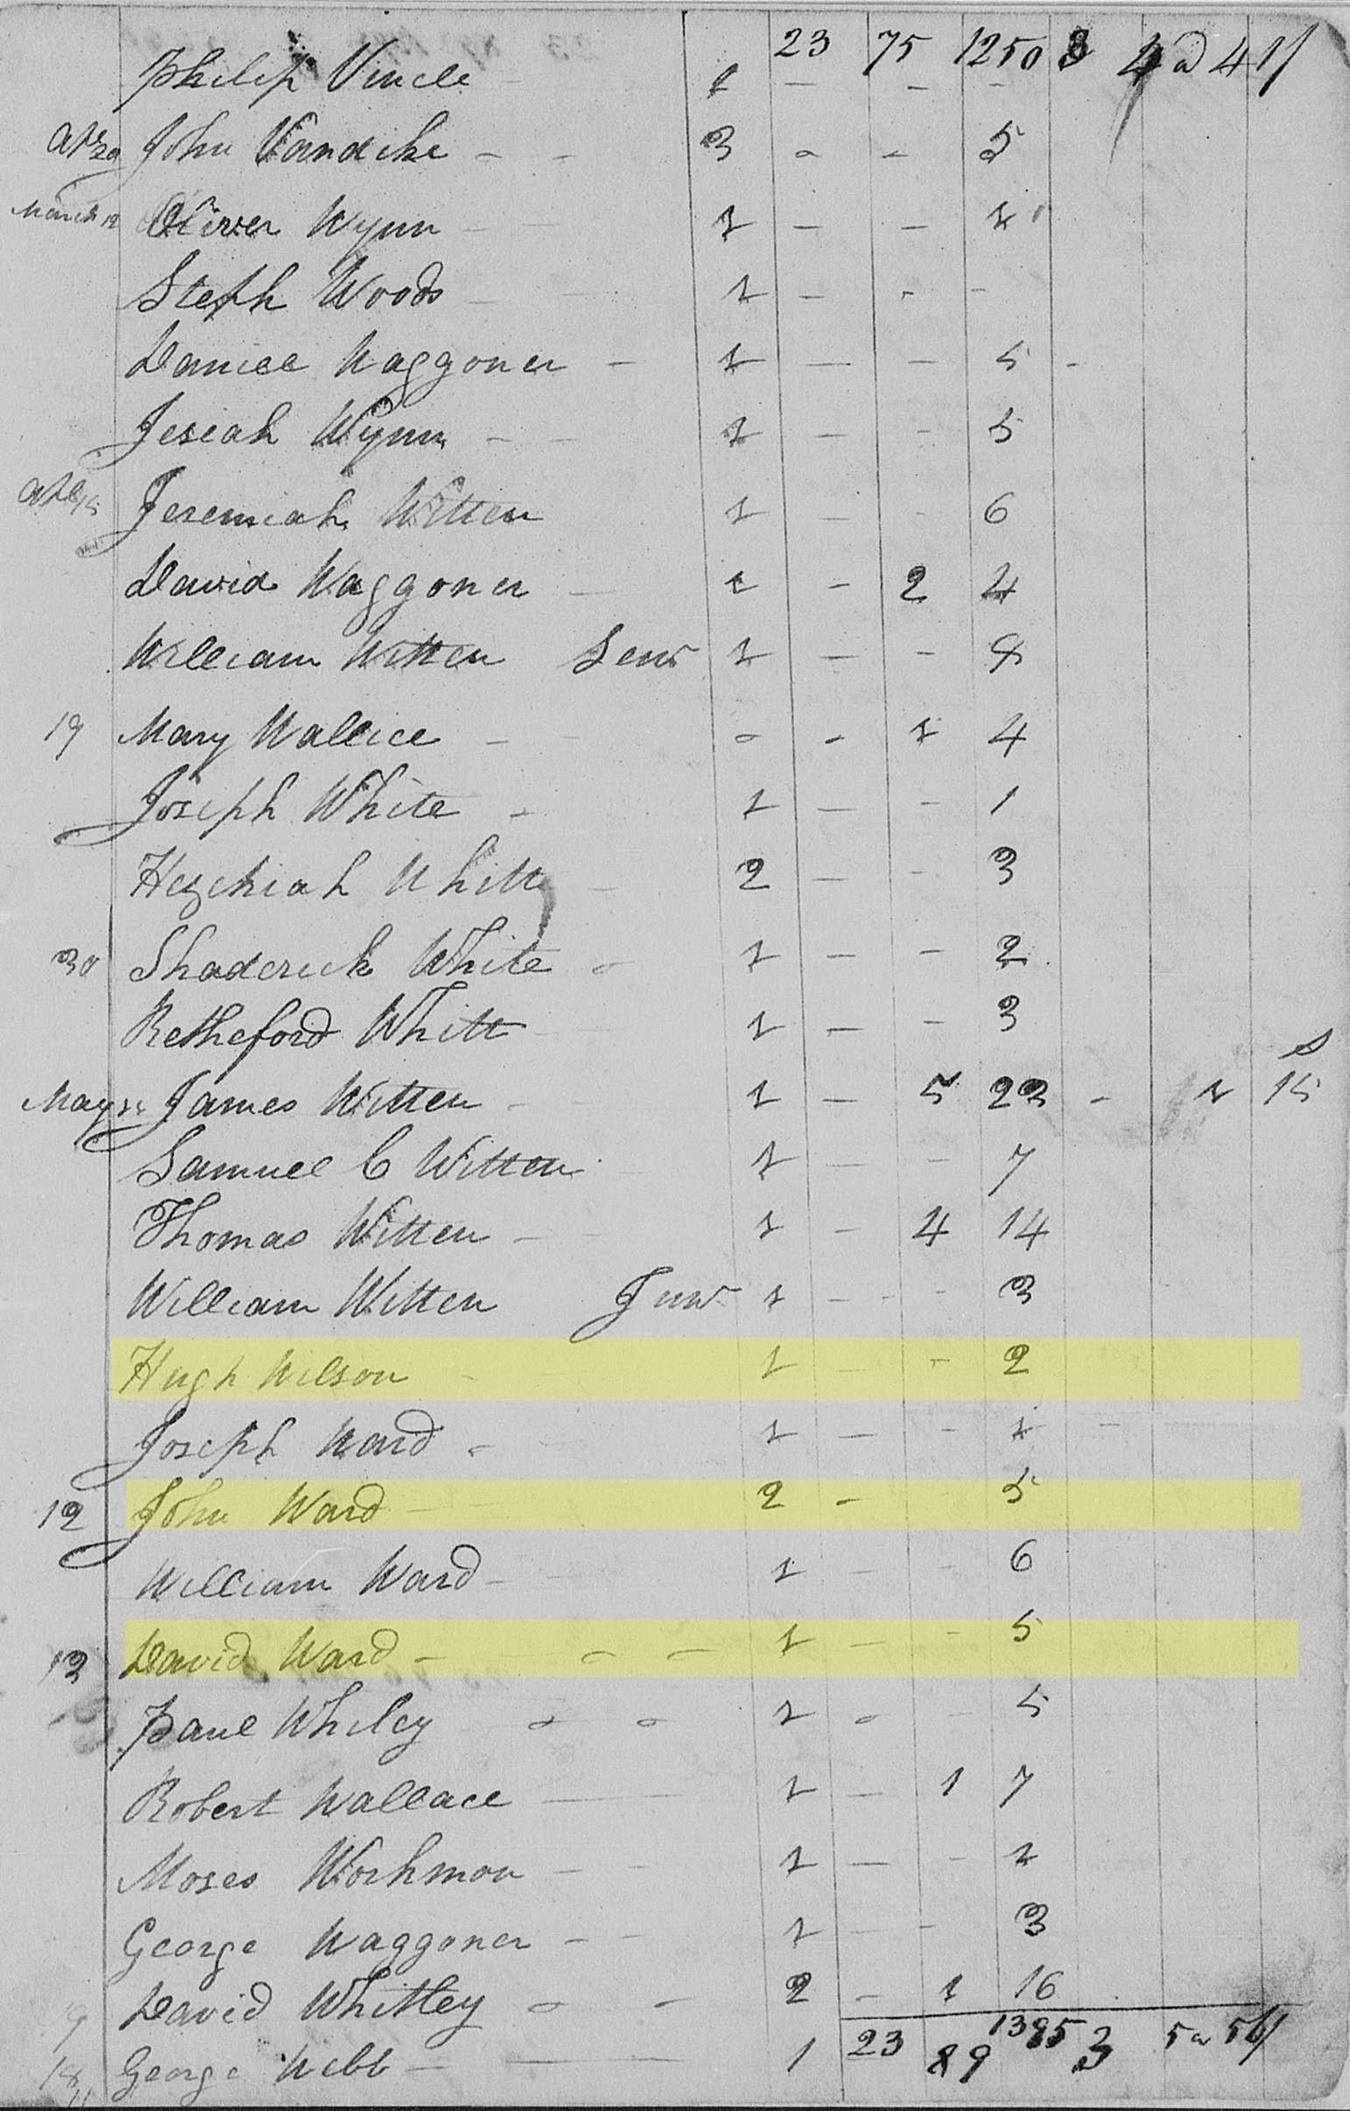 23 75 1250 3 4 a 41/
Philip Vincle - 1 - - -
Apr 20 John Vandike - - 3 - - 5
March 12 Oliver Wynn - - 1 - - 1
Steph Woods - - 1 - - -
Daniel Waggoner - 1 - - 5 -
Jeseah Wynn - - 1 - - 5
Jeremiah Witten 1 - - 6
David Waggoner - 1 - 2 4
William Witten Senr 1 - - 8
19 Mary Wallice - - - - 1 4
Joseph White - 1 - - 1
Hezekiah Whitt - 2 - - 3
30 Shaderick White - 1 - - 2
Retheford Whitt - 1 - - 3
s
May James Witten - 1 - 5 23 - 1 15
Samuel C Witten 1 - - 7
Thomas Witten - 1 - 4 14
William Witten Junr 1 - - - 3
Hugh Wilson - 1 - 2
Joseph Ward - 1 - - 1 -
12 John Ward - 2 - 5
William Ward - 1 - - 6
13 David Ward - - - 1 - - 5
Paul Whiley - - 1 - - 5
Robert Wallace - 1 - 1 7
Moses Workmon - - 1 - - 1
George Waggoner - - 1 - - 3
9 David Whitley - - 2 - 1 16
18 George Webb - - 1 23 89 1385 3 5 a 56/